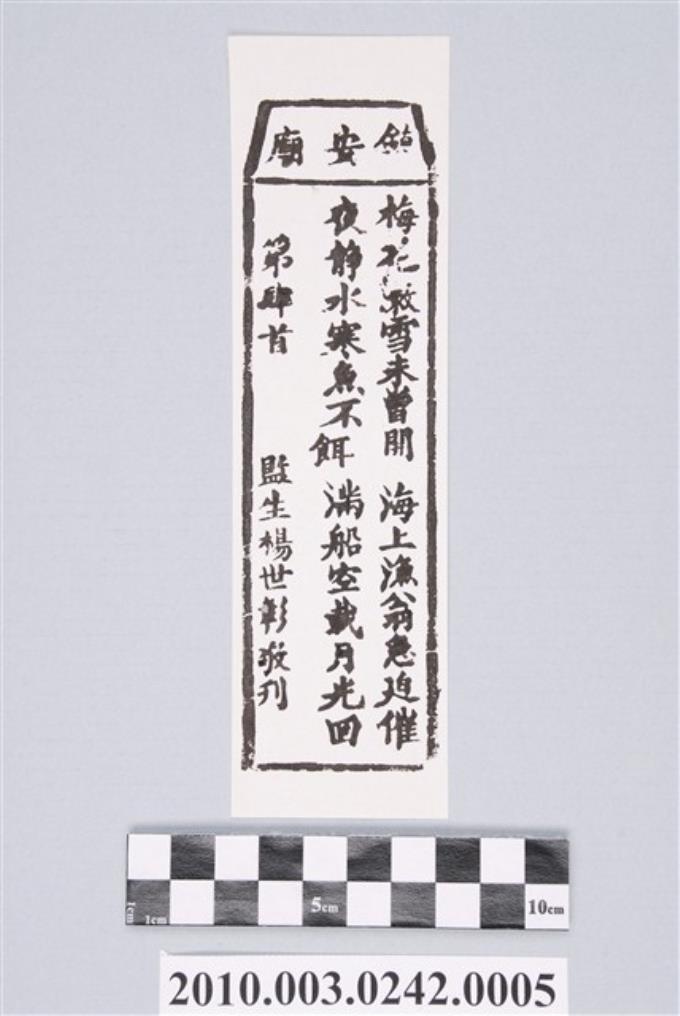 鎮安廟
梅花散雪未曾開 海上漁翁急迫催
夜靜水寒魚不餌 滿船空載月光回
第肆首 監生楊世彰敬刊
1cm 1cm 5cm 10cm
2010.003.0242.0005